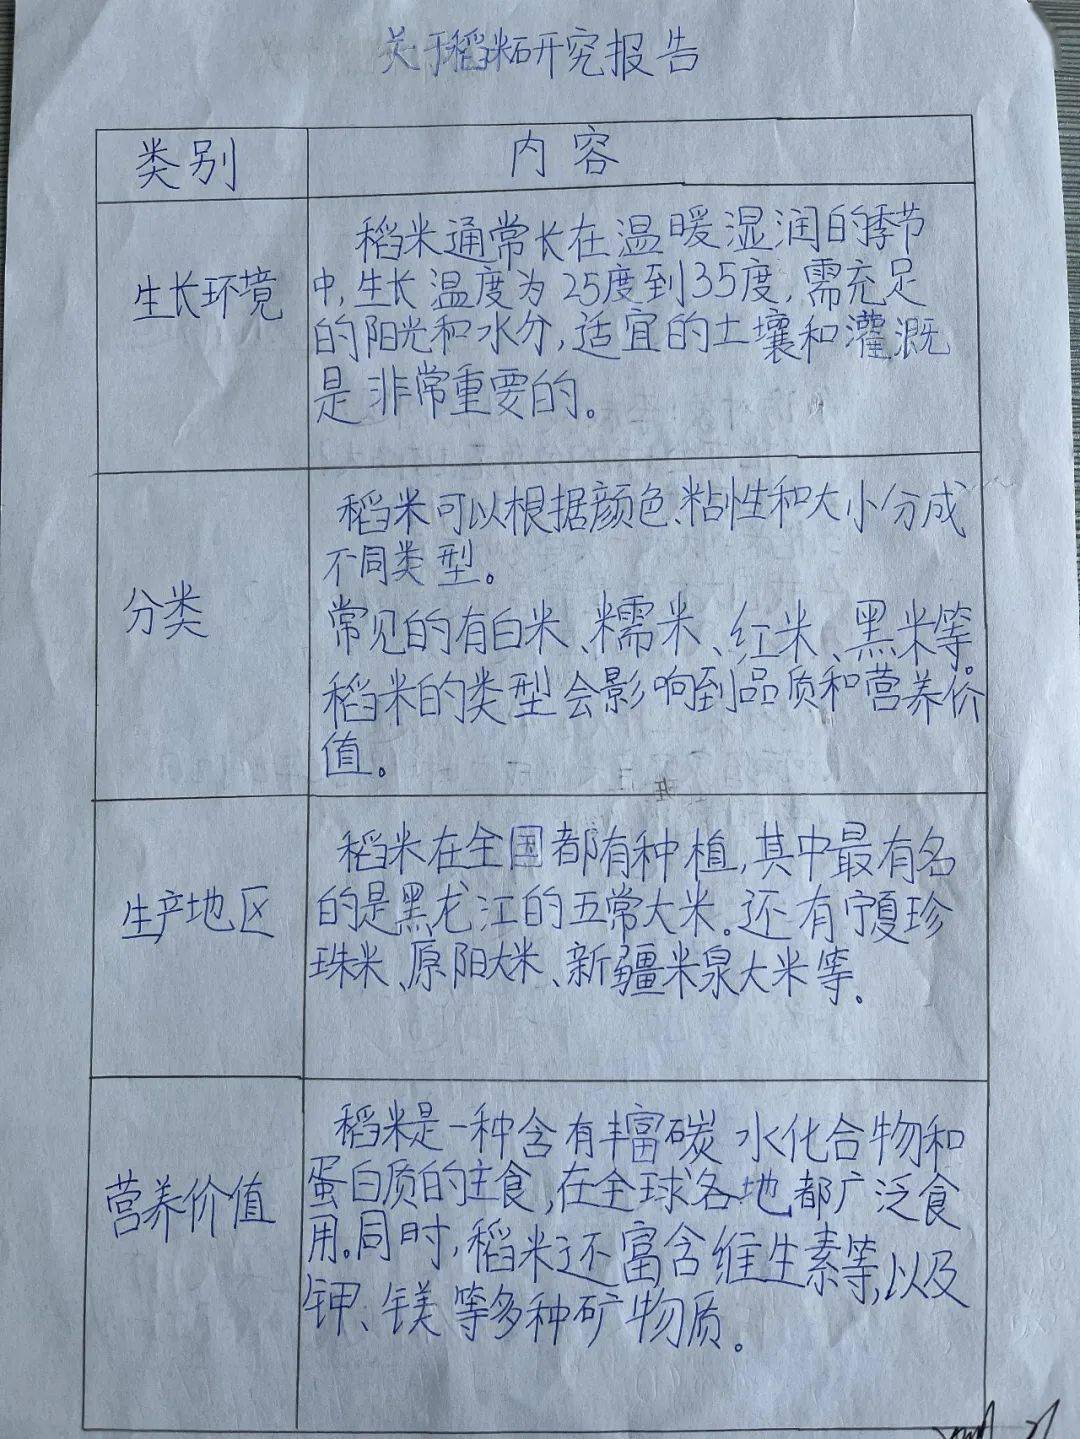 关于稻米研究报告
类别
内容
生长环境
稻米通常长在温暖湿润的季节
中,生长温度为25度到35度,需充足
的阳光和水分,适宜的土壤和灌溉
是非常重要的。
分类
稻米可以根据颜色、粘性和大小分成
不同类型。
常见的有白米、糯米、红米、黑米等。
稻米的类型会影响到品质和营养价
值。
生产地区
稻米在全国都有种植,其中最有名
的是黑龙江的五常大米。还有宁夏珍
珠米、原阳大米、新疆米泉大米等。
营养价值
稻米是一种含有丰富碳水化合物和
蛋白质的主食,在全球各地都广泛食
用。同时,稻米还富含维生素等,以及
钾、镁等多种矿物质。